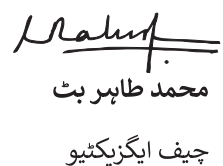 محمد طاہر بٹ
چیف ایگزیکٹیو